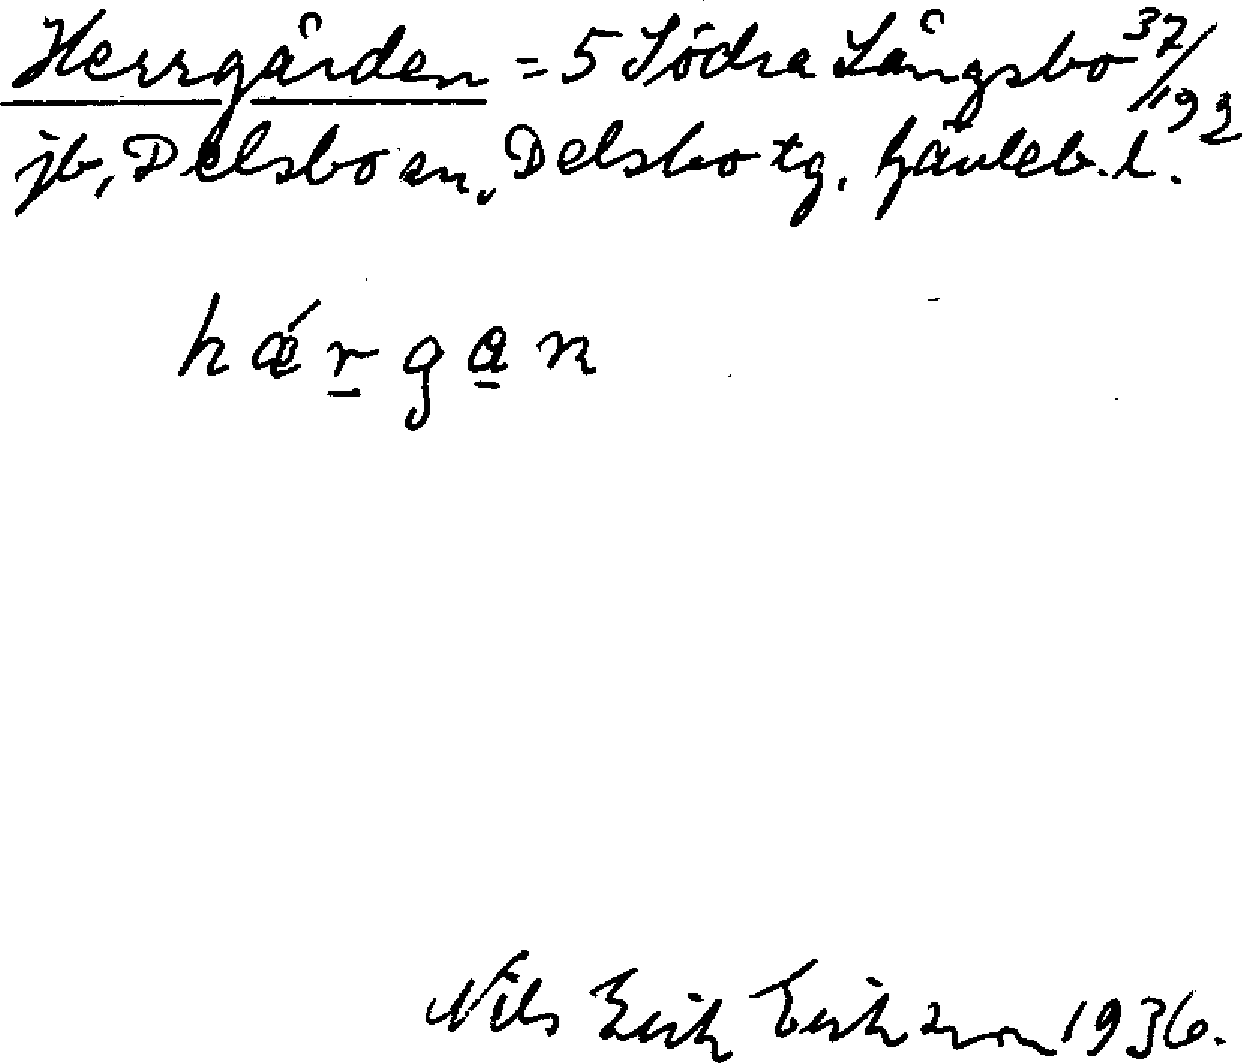 Herrgården = 5 Södra Långsbo 37/192
jb, Delsbo sn, Delsbo tg. Gävleb. l.
hǽr̲ga̲n
Nils Erik Eriksson 1936.